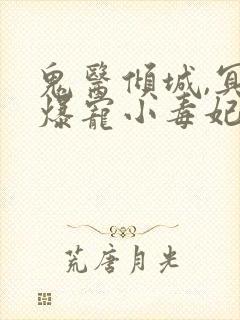 鬼醫傾城,冥
爆寵小毒妃
荒唐月光